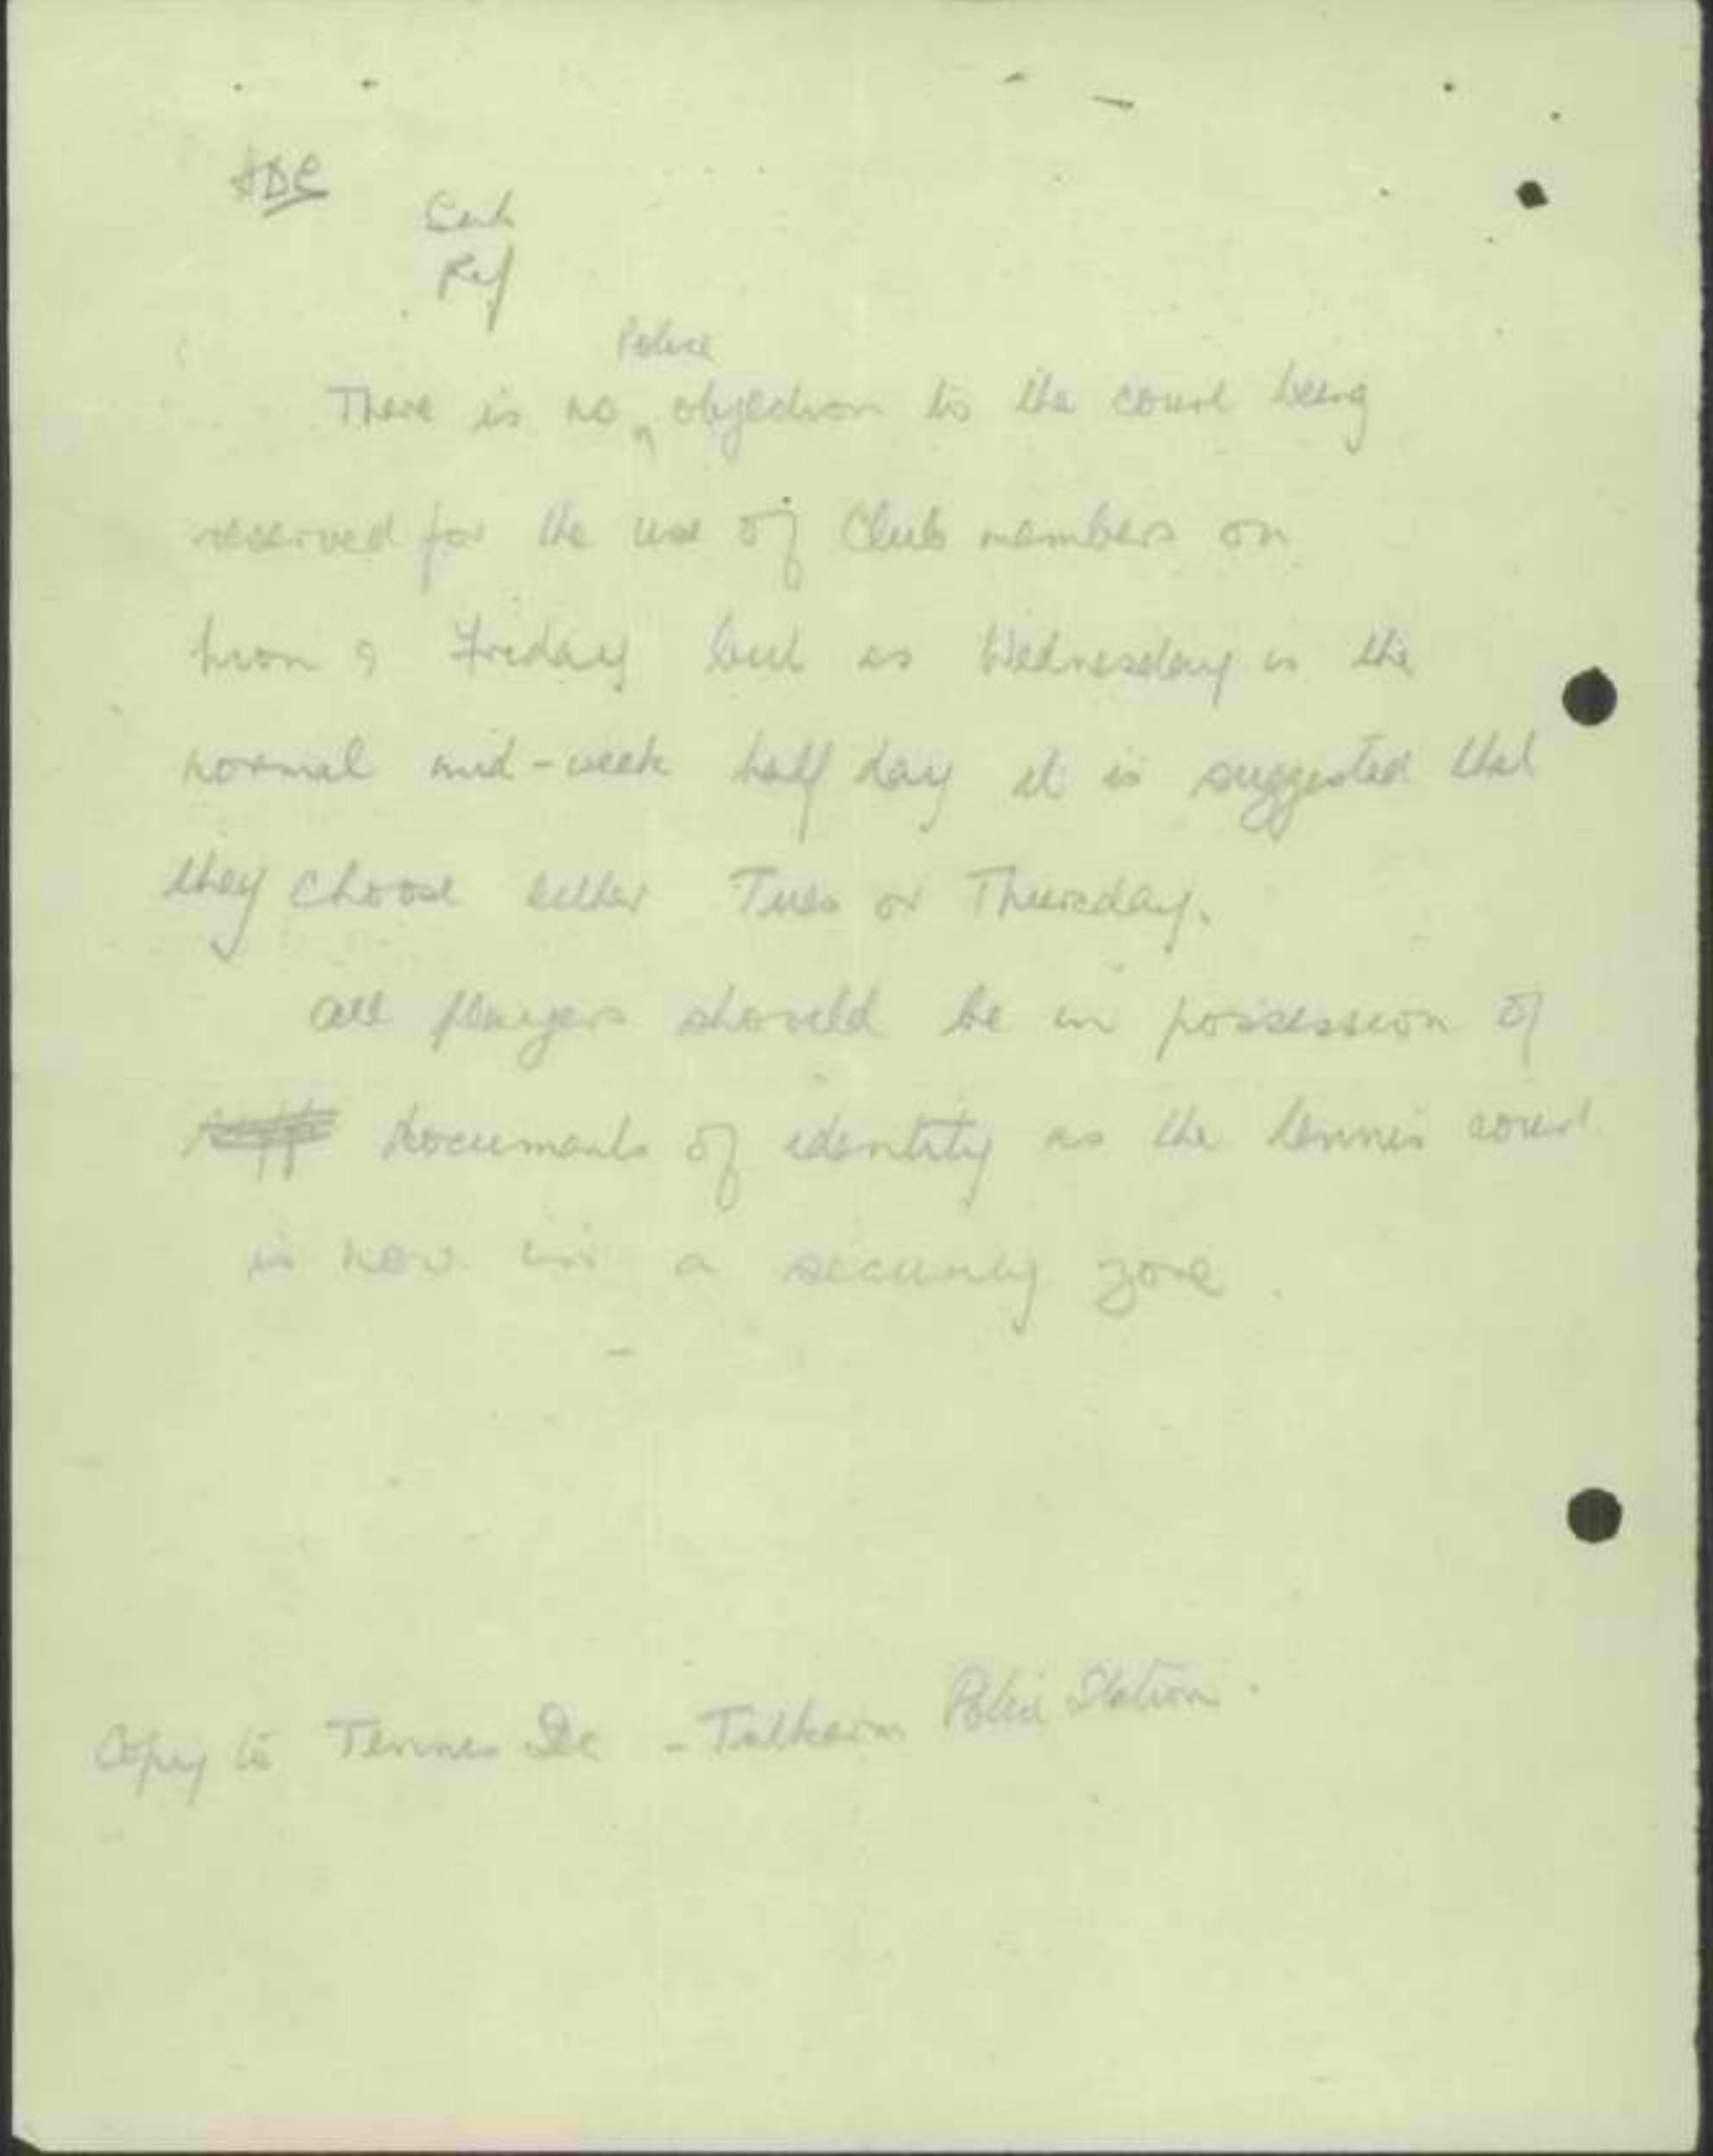 ADC
Ref
Police
There is no ^ objection to the court being
reserved for the use of Club members on
Friday but as Wednesday is the
normal mid-week half day it is suggested that
they choose either Tues or Thursday.
All players should be in possession of
documents of identity as the tennis court
is now in a security zone.
Copy to Tennis - Tulkarm Police Station.